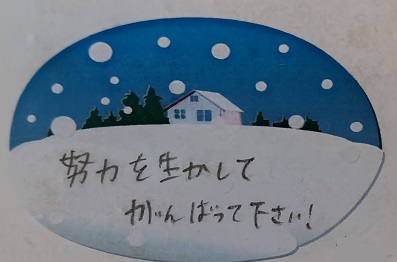 努力を生かして
がんばって下さい!